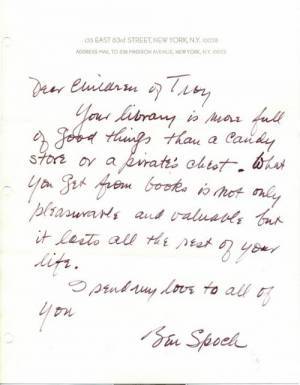 135 EAST 83rd STREET, NEW YORK, N.Y. 10028
ADDRESS MAIL TO MADISON AVENUE, NEW YORK, N.Y.
Dear Children of Troy
Your library is more full
of good things than a candy
store or a pirate's chest. What
you get from books is not only
pleasurable and valuable but
it lasts all the rest of your
life.
I send my love to all of
you
Ben Spock